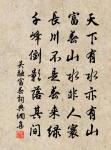 天下有水亦有山
富春山水非人寰
長川不是春來綠
千峰倒影落其間
吳融富春詞典網